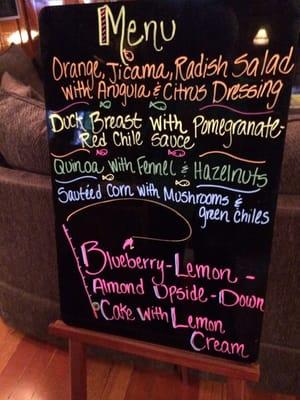 Menu
Orange, Jicama, Radish Salad
with Arugula & Citrus Dressing
Duck Breast with Pomegranate-
Red Chile Sauce
Quinoa with Fennel & Hazelnuts
Sautéed Corn with Mushrooms &
green chiles
Blueberry-Lemon-
Almond Upside-Down
Cake with Lemon
Cream